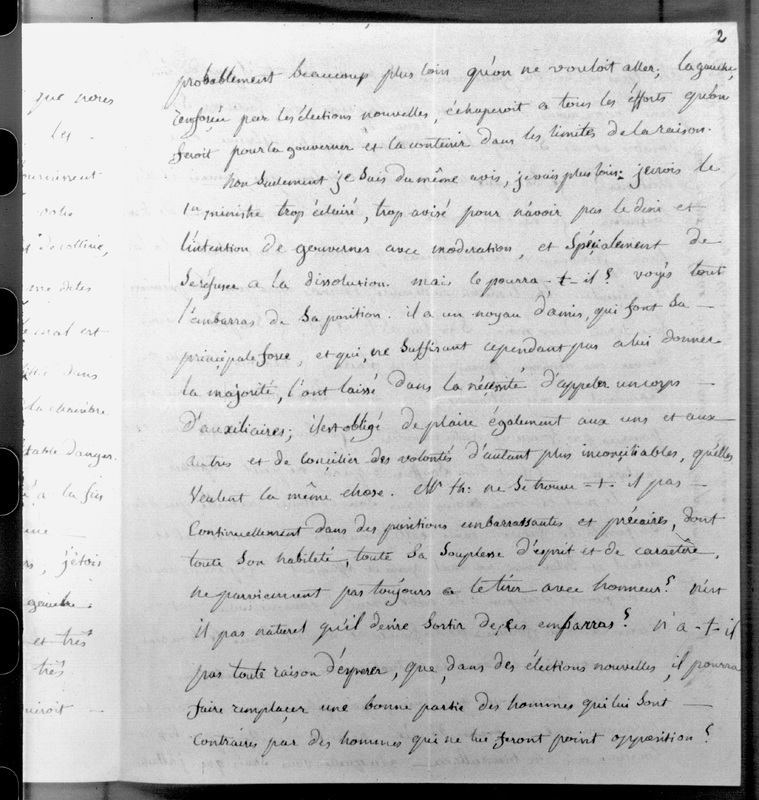 2
probablement beaucoup plus loin qu'on ne vouloit aller; la gauche,
renforcée par les élections nouvelles, échaperoit a tous les efforts qu'on
feroit pour la gouverner et la contenir dans les limites de la raison.
Non seulement je suis du même avis, je vais plus loin: je crois le
1er ministre trop éclairé, trop avisé pour n'avoir pas le désir et
l'intention de gouverner avec modération, et spécialement de
se réfuser a la dissolution. mais le pourra-t-il? voyés tout
l'embarras de sa position. il a un noyau d'amis, qui font sa
principale force, et qui, ne suffisant cependant pas a lui donner
la majorité, l'ont laissé dans la nécessité d'appeler un corps
d'auxiliaires; il est obligé de plaire également aux uns et aux
autres et de concilier des volontés d'autant plus inconciliables, qu'elles
veulent la même chose. Mr. th: ne se trouve-t-il pas
continuellement dans des positions embarrassantes et précaires, dont
toute son habileté, toute sa souplesse d'esprit et de caractère,
ne parviennent pas toujours a le tirer avec honneur? n'est
il pas naturel qu'il désire sortir de ces embarras? n'a-t-il
pas toute raison d'espérer, que, dans des élections nouvelles, il pourra
faire remplacer une bonne partie des hommes qui lui sont
contraires par des hommes qui ne lui feront point opposition?
que nores
les
votre
de colline,
dites
est
dans
la chambre
table danger.
a la fois
j'étois
gauche
et très
très